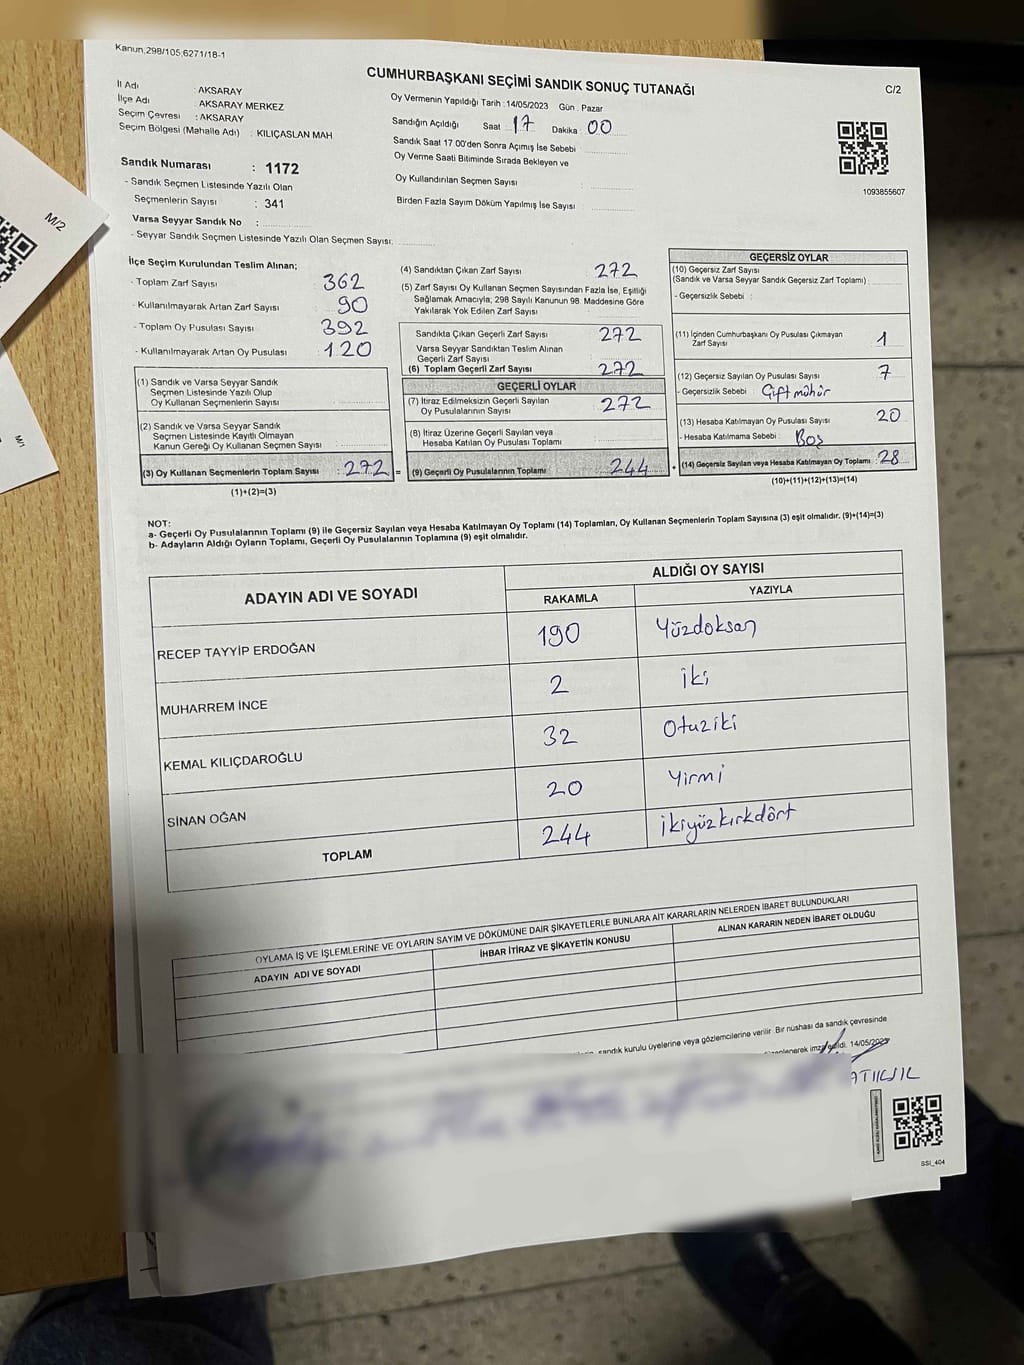 Kanun.298/105,6271/18-1
CUMHURBAŞKANI SEÇİMİ SANDIK SONUÇ TUTANAĞI
C/2
İl Adı : AKSARAY
İlçe Adı : AKSARAY MERKEZ
Seçim Çevresi : AKSARAY
Seçim Bölgesi (Mahalle Adı) : KILIÇASLAN MAH
Oy Vermenin Yapıldığı Tarih : 14/05/2023 Gün : Pazar
Sandığın Açıldığı Saat 17 Dakika : 00
Sandık Saat 17 00'den Sonra Açımış İse Sebebi :
Oy Verme Saati Bitiminde Sırada Bekleyen ve
Oy Kullandırılan Seçmen Sayısı :
Birden Fazla Sayım Döküm Yapılmış İse Sayısı :
1093855607
Sandık Numarası : 1172
- Sandık Seçmen Listesinde Yazılı Olan
Seçmenlerin Sayısı : 341
Varsa Seyyar Sandık No :
- Seyyar Sandık Seçmen Listesinde Yazılı Olan Seçmen Sayısı:
M/2
M/1
İlçe Seçim Kurulundan Teslim Alınan;
- Toplam Zarf Sayısı : 362
- Kullanılmayarak Artan Zarf Sayısı : 90
- Toplam Oy Pusulası Sayısı : 392
- Kullanılmayarak Artan Oy Pusulası : 120
(1) Sandık ve Varsa Seyyar Sandık
Seçmen Listesinde Yazılı Olup
Oy Kullanan Seçmenlerin Sayısı :
(2) Sandık ve Varsa Seyyar Sandık
Seçmen Listesinde Kayıtlı Olmayan
Kanun Gereği Oy Kullanan Seçmen Sayısı :
(3) Oy Kullanan Seçmenlerin Toplam Sayısı : 272 =
(1)+(2)=(3)
(4) Sandıktan Çıkan Zarf Sayısı : 272
(5) Zarf Sayısı Oy Kullanan Seçmen Sayısından Fazla İse, Eşitliği
Sağlamak Amacıyla, 298 Sayılı Kanunun 98. Maddesine Göre
Yakılarak Yok Edilen Zarf Sayısı :
Sandıkta Çıkan Geçerli Zarf Sayısı : 272
Varsa Seyyar Sandıktan Teslim Alınan
Geçerli Zarf Sayısı :
(6) Toplam Geçerli Zarf Sayısı : 272
GEÇERLİ OYLAR
(7) İtiraz Edilmeksizin Geçerli Sayılan
Oy Pusulalarının Sayısı : 272
(8) İtiraz Üzerine Geçerli Sayılan veya
Hesaba Katılan Oy Pusulası Toplamı :
(9) Geçerli Oy Pusulalarının Toplamı : 244 +
GEÇERSİZ OYLAR
(10) Geçersiz Zarf Sayısı
(Sandık ve Varsa Seyyar Sandık Geçersiz Zarf Toplamı) :
- Geçersizlik Sebebi :
(11) İçinden Cumhurbaşkanı Oy Pusulası Çıkmayan
Zarf Sayısı : 1
(12) Geçersiz Sayılan Oy Pusulası Sayısı : 7
- Geçersizlik Sebebi : Çift mühür
(13) Hesaba Katılmayan Oy Pusulası Sayısı : 20
- Hesaba Katılmama Sebebi : Boş
(14) Geçersiz Sayılan veya Hesaba Katılmayan Oy Toplamı : 28
(10)+(11)+(12)+(13)=(14)
NOT:
a- Geçerli Oy Pusulalarının Toplamı (9) ile Geçersiz Sayılan veya Hesaba Katılmayan Oy Toplamı (14) Toplamları, Oy Kullanan Seçmenlerin Toplam Sayısına (3) eşit olmalıdır. (9)+(14)=(3)
b- Adayların Aldığı Oyların Toplamı, Geçerli Oy Pusulalarının Toplamına (9) eşit olmalıdır.
ADAYIN ADI VE SOYADI
ALDIĞI OY SAYISI
RAKAMLA YAZIYLA
RECEP TAYYİP ERDOĞAN 190 Yüzdoksan
MUHARREM İNCE 2 iki
KEMAL KILIÇDAROĞLU 32 Otuziki
SİNAN OĞAN 20 Yirmi
TOPLAM 244 ikiyüzkırkdört
OYLAMA İŞ VE İŞLEMLERİNE VE OYLARIN SAYIM VE DÖKÜMÜNE DAİR ŞİKAYETLERLE BUNLARA AİT KARARLARIN NELERDEN İBARET BULUNDUKLARI
ADAYIN ADI VE SOYADI İHBAR İTİRAZ VE ŞİKAYETİN KONUSU ALINAN KARARIN NEDEN İBARET OLDUĞU
sandık kurulu üyelerine veya gözlemcilerine verilir. Bir nüshası da sandık çevresinde
14/05/2023
SSI_404